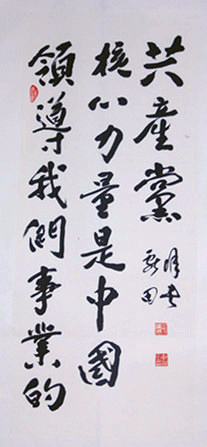 領導我們事業的
核心力量是中國
共產黨